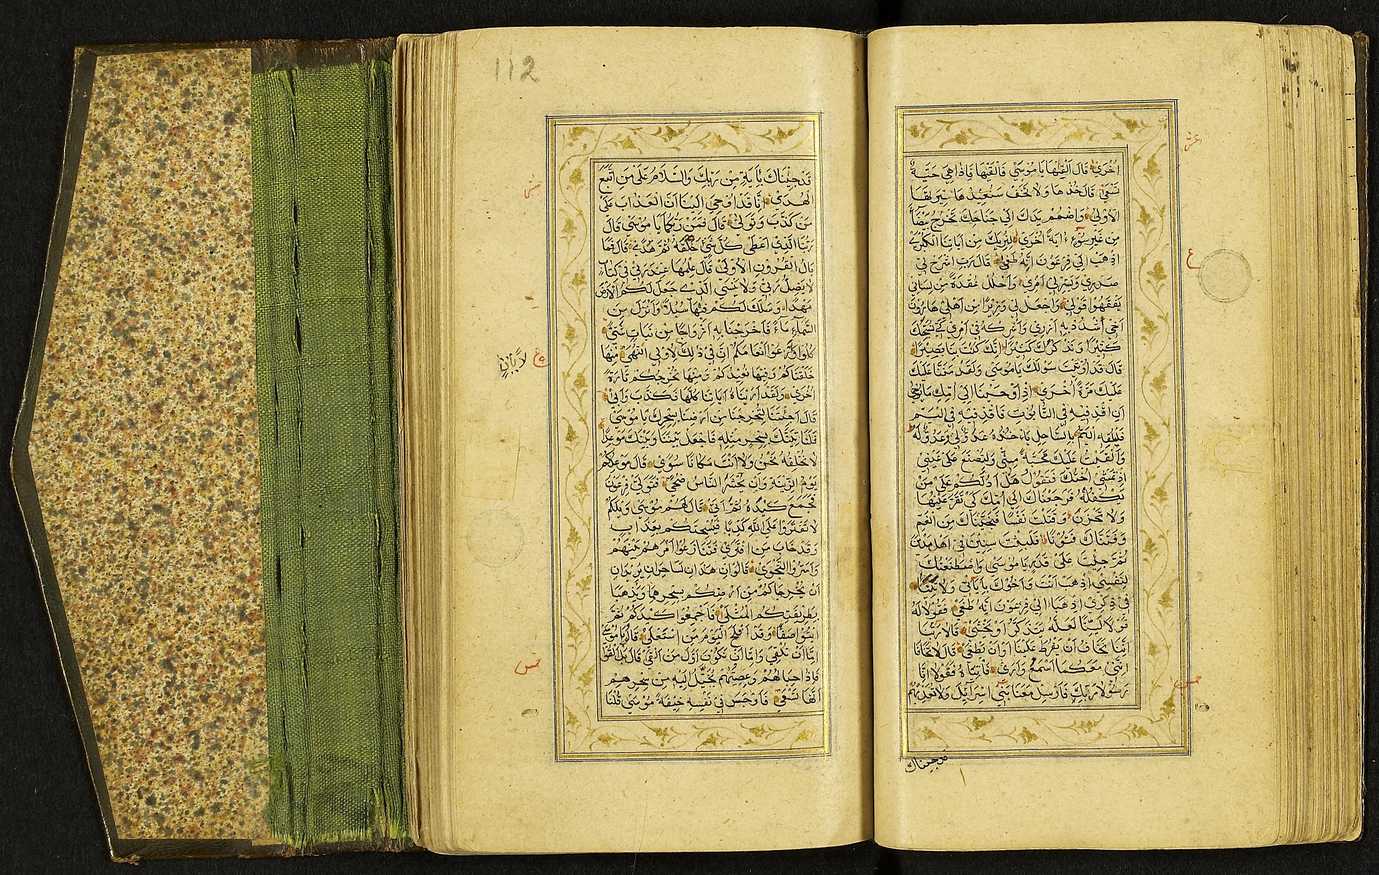 اُخْرٰى قَالَ اَلْقِهَا يَا مُوسٰى فَاَلْقٰيهَا فَاِذَا هِيَ حَيَّةٌ
تَسْعٰى قَالَ خُذْهَا وَلَا تَخَفْ سَنُعِيدُهَا سِيرَتَهَا
الْاُولٰى وَاضْمُمْ يَدَكَ اِلٰى جَنَاحِكَ تَخْرُجْ بَيْضَاءَ
مِنْ غَيْرِ سُوءٍ اٰيَةً اُخْرٰى لِنُرِيَكَ مِنْ اٰيَاتِنَا الْكُبْرٰى
اِذْهَبْ اِلٰى فِرْعَوْنَ اِنَّهُ طَغٰى قَالَ رَبِّ اشْرَحْ لِي
صَدْرِي وَيَسِّرْ لِي اَمْرِي وَاحْلُلْ عُقْدَةً مِنْ لِسَانِي
يَفْقَهُوا قَوْلِي وَاجْعَلْ لِي وَزِيرًا مِنْ اَهْلِي هَارُونَ
اَخِي اُشْدُدْ بِهِ اَزْرِي وَاَشْرِكْهُ فِي اَمْرِي كَيْ نُسَبِّحَكَ
كَثِيرًا وَنَذْكُرَكَ كَثِيرًا اِنَّكَ كُنْتَ بِنَا بَصِيرًا
قَالَ قَدْ اُوتِيتَ سُؤْلَكَ يَا مُوسٰى وَلَقَدْ مَنَنَّا عَلَيْكَ
عَلَيْكَ مَرَّةً اُخْرٰى اِذْ اَوْحَيْنَا اِلٰى اُمِّكَ مَا يُوحٰى
اَنِ اقْذِفِيهِ فِي التَّابُوتِ فَاقْذِفِيهِ فِي الْيَمِّ
فَلْيُلْقِهِ الْيَمُّ بِالسَّاحِلِ يَاْخُذْهُ عَدُوٌّ لِي وَعَدُوٌّ لَهُ
وَاَلْقَيْتُ عَلَيْكَ مَحَبَّةً مِنِّي وَلِتُصْنَعَ عَلٰى عَيْنِي
اِذْ تَمْشِي اُخْتُكَ فَتَقُولُ هَلْ اَدُلُّكُمْ عَلٰى مَنْ
يَكْفُلُهُ فَرَجَعْنَاكَ اِلٰى اُمِّكَ كَيْ تَقَرَّ عَيْنُهَا
وَلَا تَحْزَنَ وَقَتَلْتَ نَفْسًا فَنَجَّيْنَاكَ مِنَ الْغَمِّ
وَفَتَنَّاكَ فُتُونًا فَلَبِثْتَ سِنِينَ فِي اَهْلِ مَدْيَنَ
ثُمَّ جِئْتَ عَلٰى قَدَرٍ يَا مُوسٰى وَاصْطَنَعْتُكَ
لِنَفْسِي اِذْهَبْ اَنْتَ وَاَخُوكَ بِاٰيَاتِي وَلَا تَنِيَا
فِي ذِكْرِي اِذْهَبَا اِلٰى فِرْعَوْنَ اِنَّهُ طَغٰى فَقُولَا لَهُ
قَوْلًا لَيِّنًا لَعَلَّهُ يَتَذَكَّرُ اَوْ يَخْشٰى قَالَا رَبَّنَا
اِنَّنَا نَخَافُ اَنْ يَفْرُطَ عَلَيْنَا اَوْ اَنْ يَطْغٰى قَالَ لَا تَخَافَا
اِنَّنِي مَعَكُمَا اَسْمَعُ وَاَرٰى فَاْتِيَاهُ فَقُولَا اِنَّا
رَسُولَا رَبِّكَ فَاَرْسِلْ مَعَنَا بَنِي اِسْرَائِيلَ وَلَا تُعَذِّبْهُمْ
قد جئناك
ع
خمس
112
قَدْ جِئْنَاكَ بِاٰيَةٍ مِنْ رَبِّكَ وَالسَّلَامُ عَلٰى مَنِ اتَّبَعَ
الْهُدٰى اِنَّا قَدْ اُوحِيَ اِلَيْنَا اَنَّ الْعَذَابَ عَلٰى
مَنْ كَذَّبَ وَتَوَلّٰى قَالَ فَمَنْ رَبُّكُمَا يَا مُوسٰى قَالَ
رَبُّنَا الَّذِي اَعْطٰى كُلَّ شَيْءٍ خَلْقَهُ ثُمَّ هَدٰى قَالَ فَمَا
بَالُ الْقُرُونِ الْاُولٰى قَالَ عِلْمُهَا عِنْدَ رَبِّي فِي كِتَابٍ
لَا يَضِلُّ رَبِّي وَلَا يَنْسٰى الَّذِي جَعَلَ لَكُمُ الْاَرْضَ
مَهْدًا وَسَلَكَ لَكُمْ فِيهَا سُبُلًا وَاَنْزَلَ مِنَ
السَّمَاءِ مَاءً فَاَخْرَجْنَا بِهِ اَزْوَاجًا مِنْ نَبَاتٍ شَتّٰى
كُلُوا وَارْعَوْا اَنْعَامَكُمْ اِنَّ فِي ذٰلِكَ لَاٰيَاتٍ لِاُولِي النُّهٰى مِنْهَا
خَلَقْنَاكُمْ وَفِيهَا نُعِيدُكُمْ وَمِنْهَا نُخْرِجُكُمْ تَارَةً
اُخْرٰى وَلَقَدْ اَرَيْنَاهُ اٰيَاتِنَا كُلَّهَا فَكَذَّبَ وَاَبٰى
قَالَ اَجِئْتَنَا لِتُخْرِجَنَا مِنْ اَرْضِنَا بِسِحْرِكَ يَا مُوسٰى
فَلَنَاْتِيَنَّكَ بِسِحْرٍ مِثْلِهِ فَاجْعَلْ بَيْنَنَا وَبَيْنَكَ مَوْعِدًا
لَا نُخْلِفُهُ نَحْنُ وَلَا اَنْتَ مَكَانًا سُوًى قَالَ مَوْعِدُكُمْ
يَوْمُ الزِّينَةِ وَاَنْ يُحْشَرَ النَّاسُ ضُحًى فَتَوَلّٰى فِرْعَوْنُ
فَجَمَعَ كَيْدَهُ ثُمَّ اَتٰى قَالَ لَهُمْ مُوسٰى وَيْلَكُمْ
لَا تَفْتَرُوا عَلَى اللّٰهِ كَذِبًا فَيُسْحِتَكُمْ بِعَذَابٍ
وَقَدْ خَابَ مَنِ افْتَرٰى فَتَنَازَعُوا اَمْرَهُمْ بَيْنَهُمْ
وَاَسَرُّوا النَّجْوٰى قَالُوا اِنْ هٰذَانِ لَسَاحِرَانِ يُرِيدَانِ
اَنْ يُخْرِجَاكُمْ مِنْ اَرْضِكُمْ بِسِحْرِهِمَا وَيَذْهَبَا
بِطَرِيقَتِكُمُ الْمُثْلٰى فَاَجْمِعُوا كَيْدَكُمْ ثُمَّ
ائْتُوا صَفًّا وَقَدْ اَفْلَحَ الْيَوْمَ مَنِ اسْتَعْلٰى قَالُوا يَا مُوسٰى
اِمَّا اَنْ تُلْقِيَ وَاِمَّا اَنْ نَكُونَ اَوَّلَ مَنْ اَلْقٰى قَالَ بَلْ اَلْقُوا
فَاِذَا حِبَالُهُمْ وَعِصِيُّهُمْ يُخَيَّلُ اِلَيْهِ مِنْ سِحْرِهِمْ
اَنَّهَا تَسْعٰى فَاَوْجَسَ فِي نَفْسِهِ خِيفَةً مُوسٰى قُلْنَا
خمس